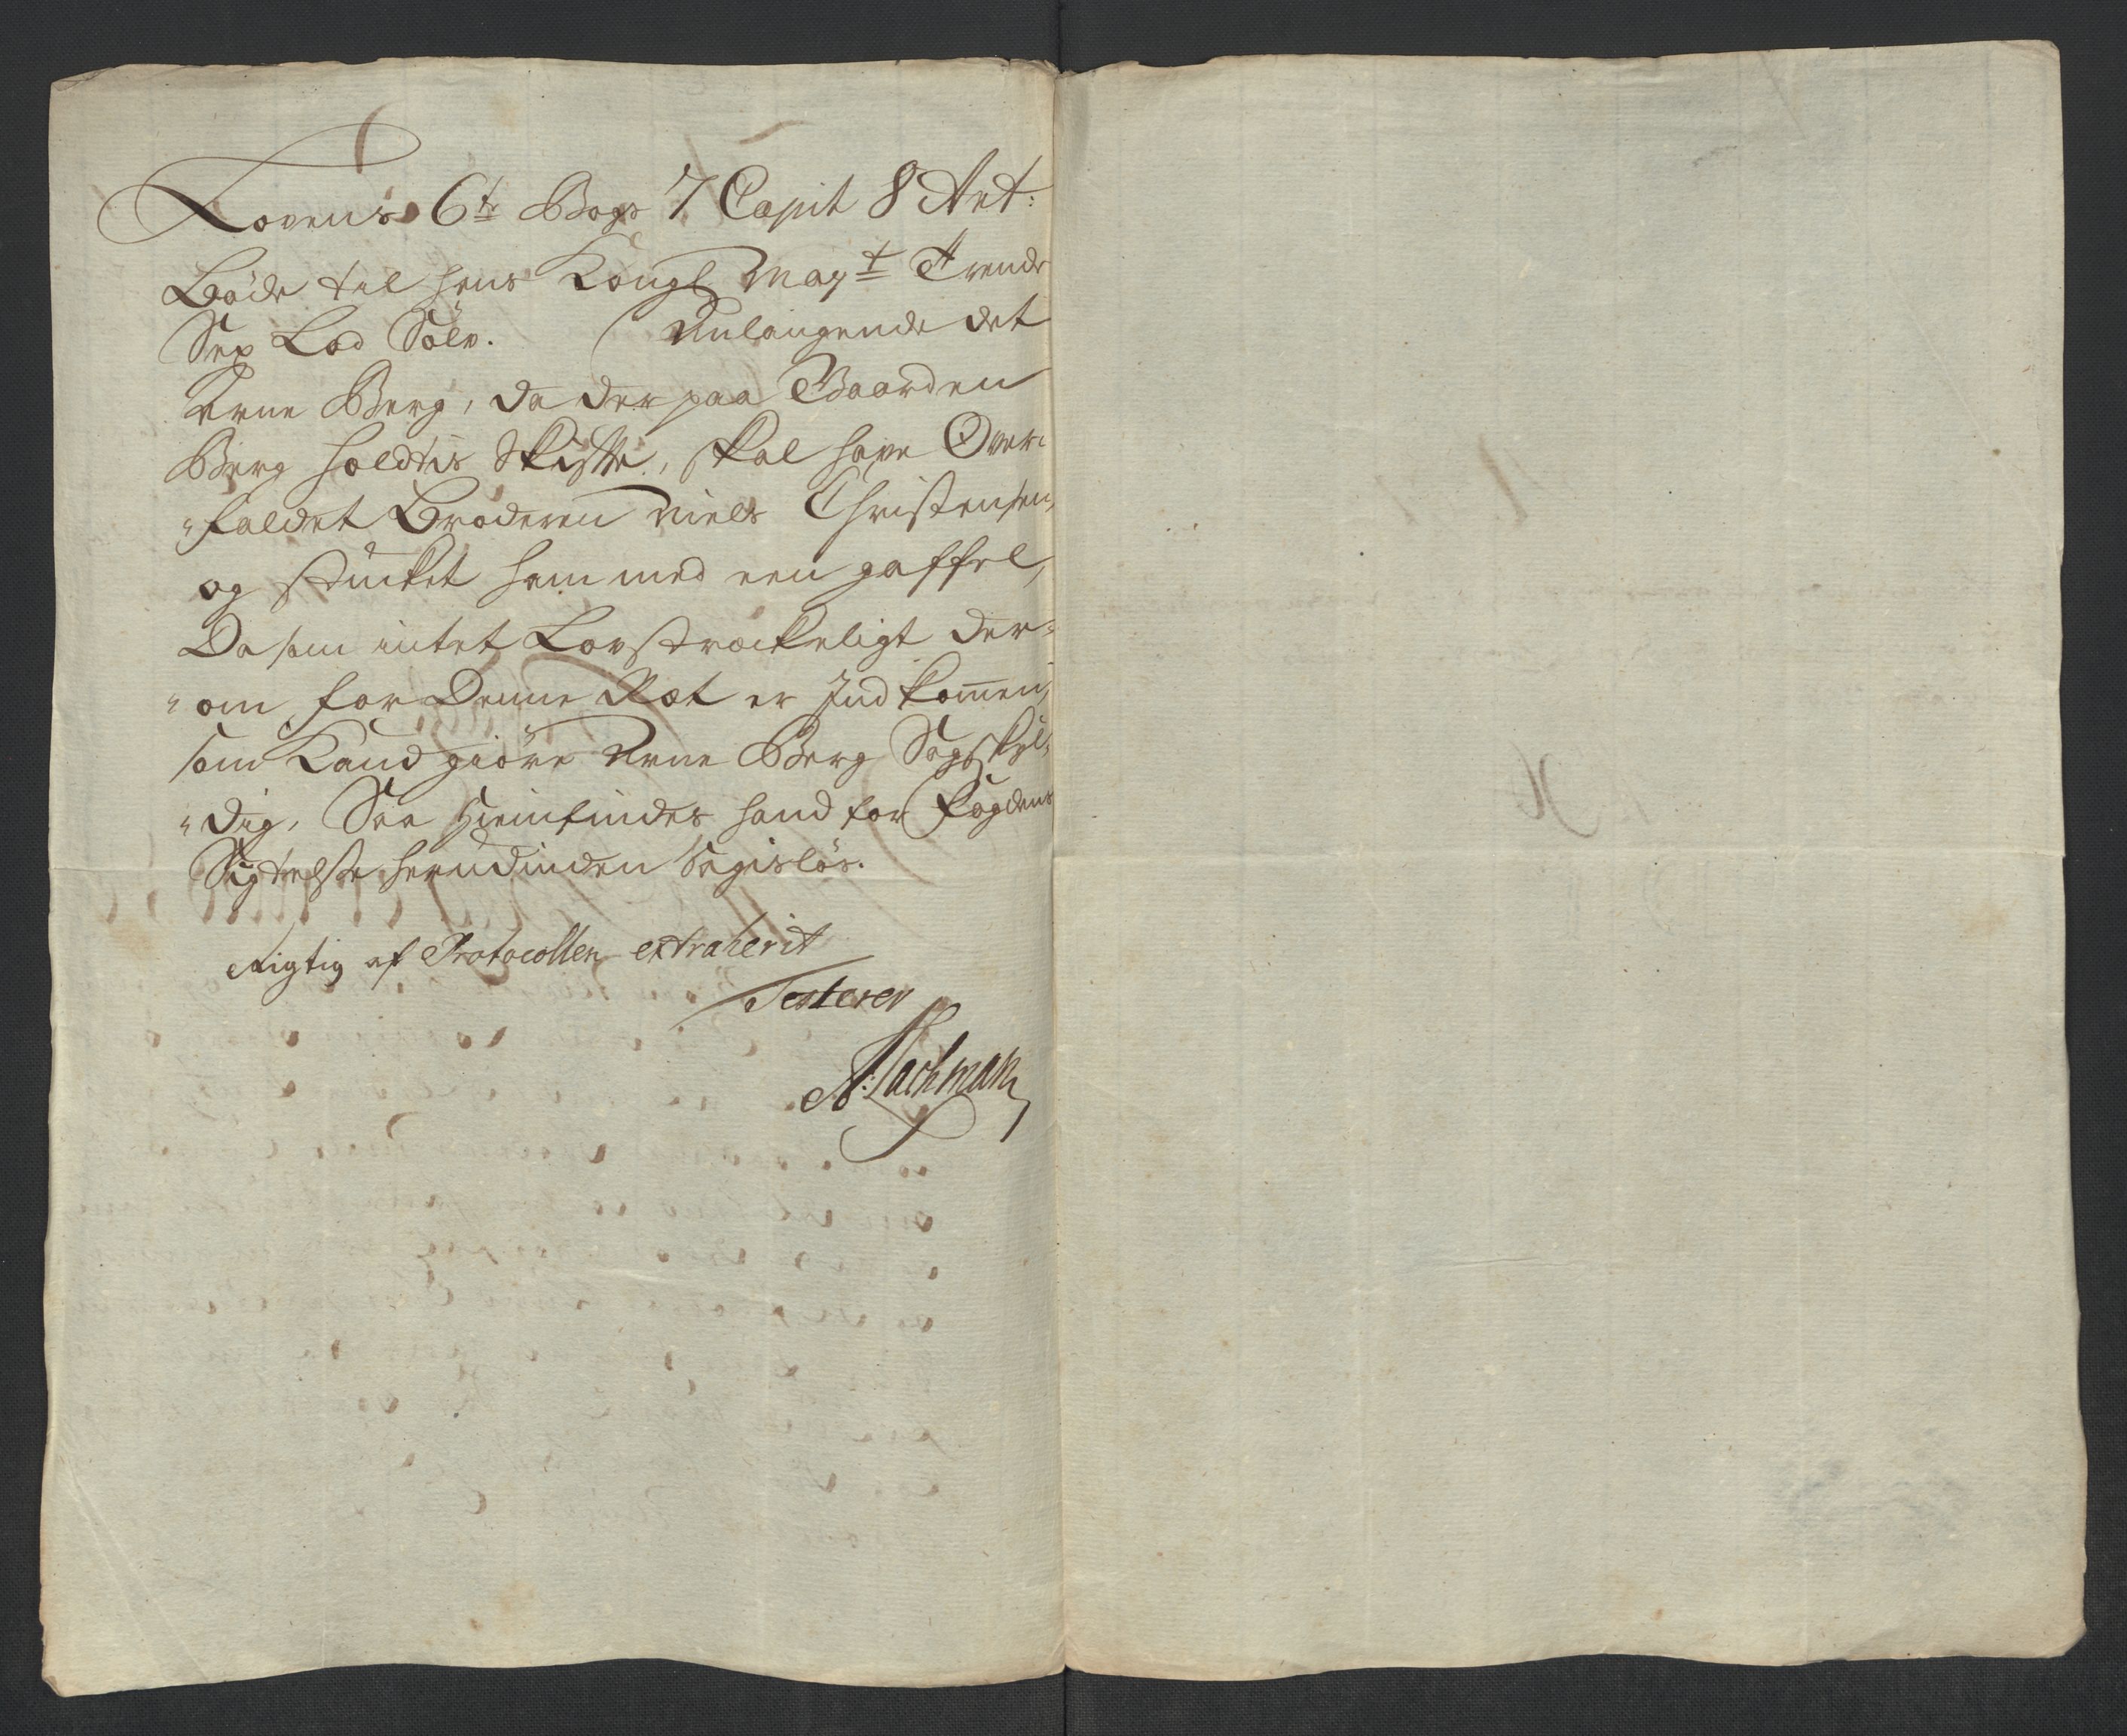 Lovens 6te Bogs 7 Capit 8 Art:
Böde til hans Kongl May:t Trende
Sex Lod Sölv. Anlangende det
Arne Berg, da der paa Gaarden
Berg holdtis Skiffte, skal have Over-
"faldet Broderen Niels Christensen,
og stucket ham med een gaffel,
Da som intet Lovstræckeligt der-
"om for Denne Ræt er Indkom̄en,
som Kand giöre Arne Berg Sagskyl-
"dig, Saa Hiemfindes hand for Fogdens
Sigtelse herudinden Sagislös.
Rigtig af Protocollen extraherit
Testerer
A: Lachman